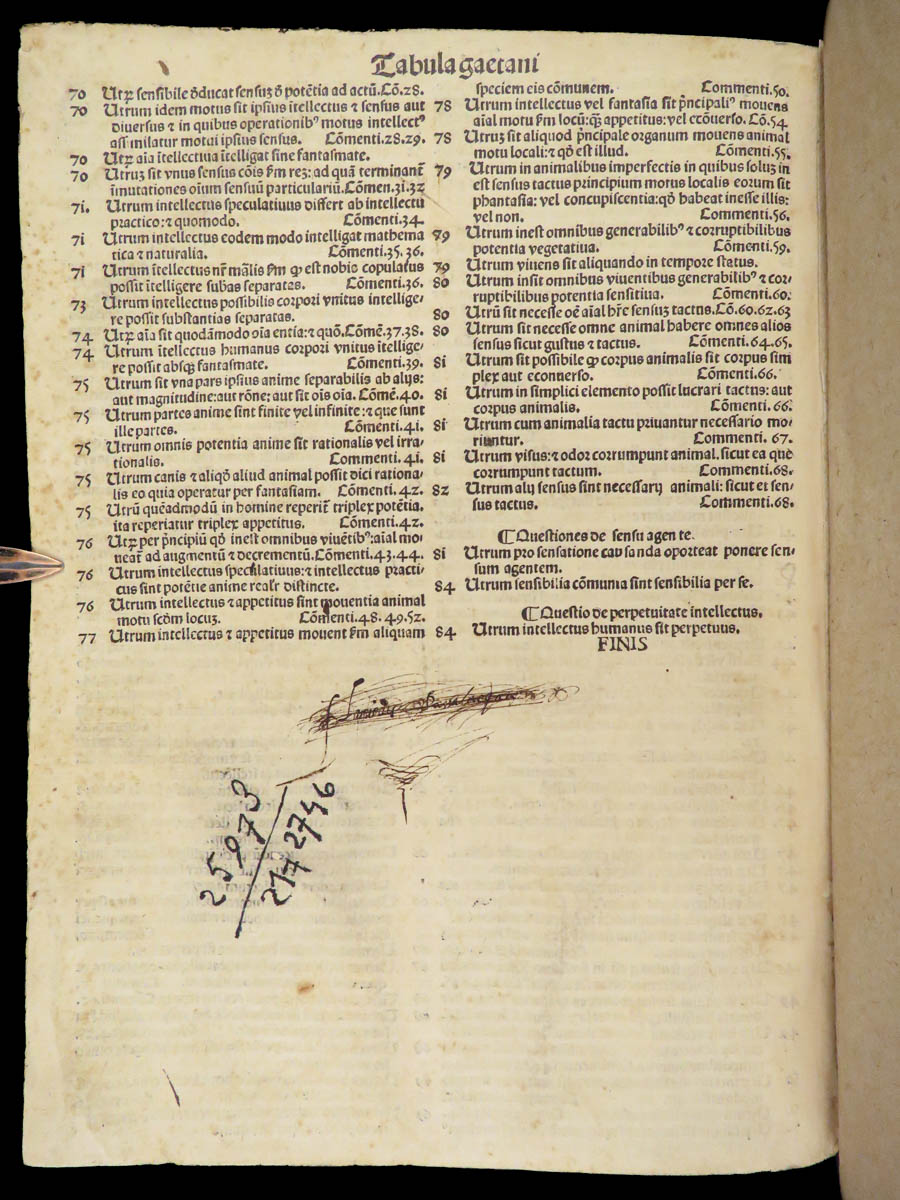 Tabula gaetani
70 Utrꝫ sensibile ōducat sensuꝫ ō potētia ad actū. Cō. 28.
70 Utrum idem motus sit ipsius ītellectus ⁊ sensus aut
diuersus ⁊ in quibus operationibꝰ motus intellectꝰ
assimilatur motui ipsius sensus. Cōmenti. 28. 29.
70 Utrꝫ aīa ītellectiua ītelligat sine fantasmate.
70 Utruꝫ sit vnus sensus cōis ẜm reꝫ: ad quā terminant̄
īmutationes oīum sensuū particulariū. Cōmen. 3i. 32
7i. Utrum intellectus speculatiuus differt ab intellectu
practico: ⁊ quomodo. Cōmenti. 34.
7i Utrum intellectus eodem modo intelligat mathema
tica ⁊ naturalia. Cōmenti. 35. 36.
7i Utrum ītellectus nr̄ māllis ẜm ꝙ est nobis copulatus
possit ītelligere subas separatas. Cōmenti. 36.
73 Utrum intellectus possibilis corpori vnitus intellige⸗
re possit substantias separatas.
74 Utrꝫ aīa sit quodāmodo oīa entia: ⁊ quō. Cōmē. 37. 38.
74 Utrum ītellectus humanus corpori vnitus ītellige⸗
re possit absqꝫ fantasmate. Cōmenti. 39.
75 Utrum sit vna pars ipsius anime separabilis ab alijs:
aut magnitudine: aut rōne: aut sit oīs oīa. Cōmē. 40.
75 Utrum partes anime sint finite vel infinite: ⁊ que sunt
ille partes. Cōmenti. 4i.
75 Utrum omnis potentia anime sit rationalis vel irra⸗
tionalis. Commenti. 4i.
75 Utrum canis ⁊ aliqō aliud animal possit dici rationa⸗
lis eo quia operatur per fantasiam. Cōmenti. 42.
75 Utrū quēadmodū in homine reperit̄ triplex potētia.
ita reperiatur triplex appetitus. Cōmenti. 42.
76 Utrꝫ per p̄ncipiū qō inest omnibus viuētibꝰ: aīal mo⸗
ueat̄ ad augmentū ⁊ decrementū. Cōmenti. 43. 44.
76 Utrum intellectus speculatiuus: ⁊ intellectus practi⸗
cus sint potētie anime realr̄ distincte.
76 Utrum intellectus ⁊ appetitus sint mouentia animal
motu scd̄m locuꝫ. Cōmenti. 48. 49. 52.
77 Utrum intellectus ⁊ appetitus mouent ẜm aliquam
speciem eis cōmunem. Commenti. 50.
78 Utrum intellectus vel fantasia sit p̄ncipalꝰ mouens
aīal motu ẜm locū: qꝫ appetitus: vel ecōuerso. Cō. 54
78 Utruꝫ sit aliquod p̄ncipale organum mouens animal
motu locali: ⁊ qō est illud. Cōmenti. 55.
79 Utrum in animalibus imperfectis in quibus soluꝫ in
est sensus tactus principium motus localis eorum sit
phantasia: vel concupiscentia: qō habeat inesse illis:
vel non. Commenti. 56.
79 Utrum inest omnibus generabilibꝰ ⁊ corruptibilibus
potentia vegetatiua. Cōmenti. 59.
79 Utrum viuens sit aliquando in tempore status.
80 Utrum insit omnibus viuentibus generabilibꝰ ⁊ cor⸗
ruptibilibus potentia sensitiua. Cōmenti. 60.
80 Utrū sit necesse oē aīal hr̄e sensuꝫ tactus. Cō. 60. 62. 63
80 Utrum sit necesse omne animal habere omnes alios
sensus sicut gustus ⁊ tactus. Cōmenti. 64. 65.
8i Utrum sit possibile ꝙ corpus animalis sit corpus sim
plex aut econuerso. Cōmenti. 66.
8i Utrum in simplici elemento possit lucrari tactus: aut
corpus animalis. Cōmenti. 66.
8i Utrum cum animalia tactu priuantur necessario mo⸗
riuntur. Commenti. 67.
8i Utrum visus: ⁊ odor corrumpunt animal. sicut ea que
corrumpunt tactum. Commenti. 68.
82 Utrum alij sensus sint necessarij animali: sicut et sen⸗
sus tactus. Commenti. 68.
¶ Questiones de sensu agente.
8i Utrum pro sensatione causanda oporteat ponere sen⸗
sum agentem.
84. Utrum sensibilia cōmunia sint sensibilia per se.
¶ Questio de perpetuitate intellectus.
84. Utrum intellectus humanus sit perpetuus.
FINIS
25973
2742746